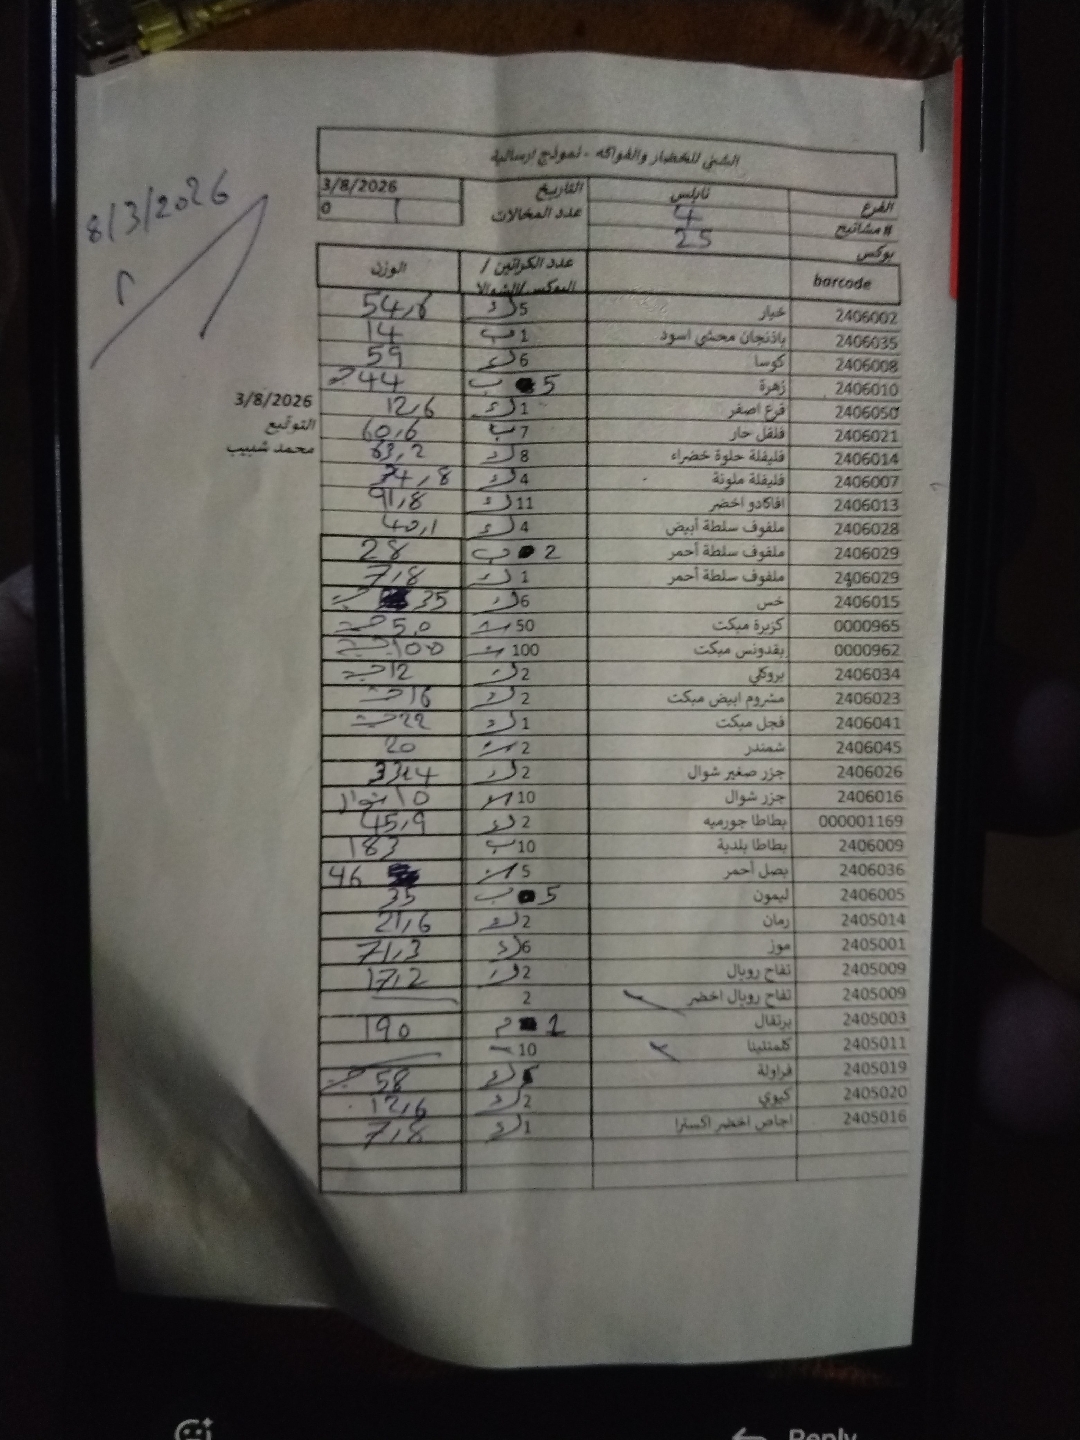 الشني للخضار والفواكه - نموذج ارسالية
الفرع نابلس التاريخ 3/8/2026
# مشاتيح 4 عدد المخالات 0
بوكس 25
8/3/2026
barcode عدد الكراتين / البوكس/الشوالا الوزن
2406002 خيار 5 ك
2406035 باذنجان محشي اسود 1 ب 14
2406008 كوسا 6 ك 59
2406010 زهرة 5 ب 44 حبة
2406050 قرع اصفر 1 ك 12,6
2406021 فلفل حار 7 ب 60,6
2406014 فليفلة حلوة خضراء 8 ك 63,2
2406007 فليفلة ملونة 4 ك 34,8
2406013 افاكادو اخضر 11 ك 91,8
2406028 ملفوف سلطة أبيض 4 ك 40,1
2406029 ملفوف سلطة أحمر 2 ب 28
2406029 ملفوف سلطة أحمر 1 ك 7,8
2406015 خس 6 ك 35 حبة
0000965 كزبرة مبكت 50 50 حبة
0000962 بقدونس مبكت 100 100 حبة
2406034 بروكلي 2 ك 12 حبة
2406023 مشروم ابيض مبكت 2 ك 16 حبة
2406041 فجل مبكت 1 ك 22 حبة
2406045 شمندر 2 20
2406026 جزر صغير شوال 2 ك 33,4
2406016 جزر شوال 10 10 شوال
000001169 بطاطا جورميه 2 ك 45,9
2406009 بطاطا بلدية 10 ب 183
2406036 بصل أحمر 5 46
2406005 ليمون 5 ب 35
2405014 رمان 2 ك 21,6
2405001 موز 6 ك 71,3
2405009 تفاح رويال 2 ك 17,2
2405009 تفاح رويال اخضر 2
2405003 برتقال 1 م 190
2405011 كلمنتينا 10
2405019 فراولة ك 58 حبة
2405020 كيوي 2 ك 12,6
2405016 اجاص اخضر اكسترا 1 ك 7,8
3/8/2026
التوقيع
محمد شبيب
Reply